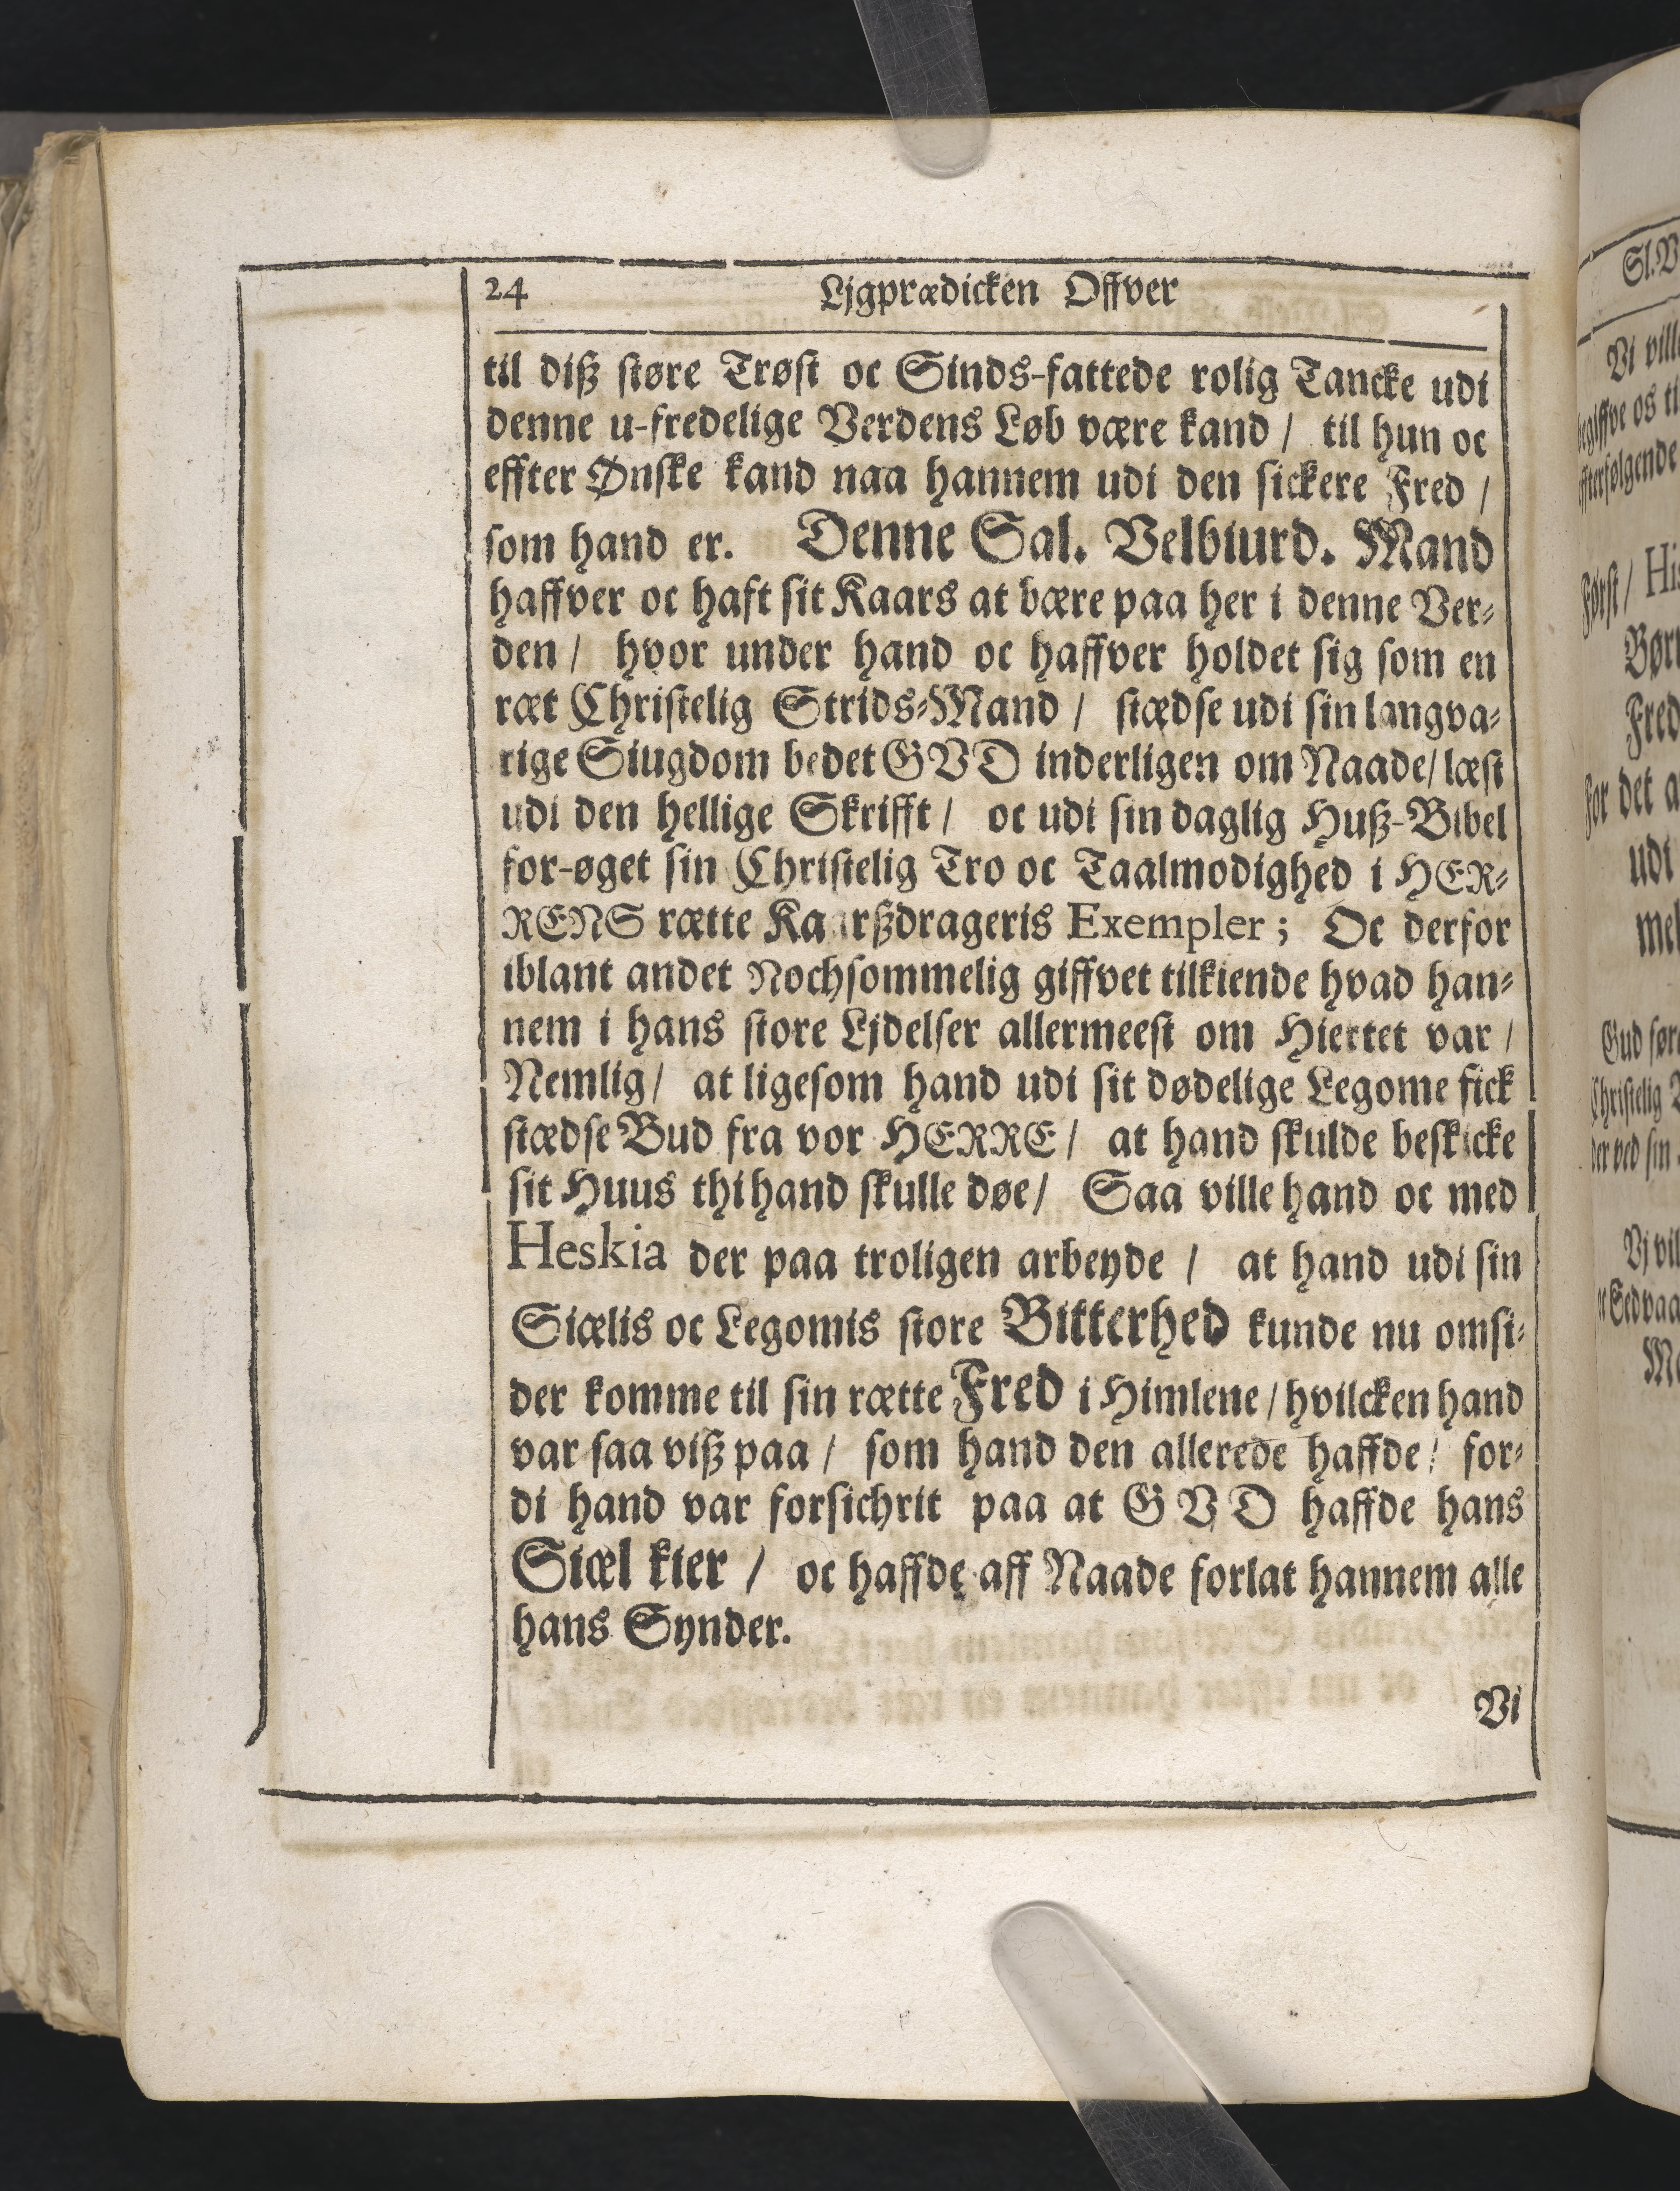 24 Ljgprædicken Offver
til diß støre Trøst oc Sinds-fattede rolig Tancke udi
denne u-fredelige Verdens Løb være kand / til hun oc
effter Ønske kand naa hannem udi den sickere Fred /
som hand er. Denne Sal. Velbiurd. Mand
haffver oc haft sit Kaars at bære paa her i denne Ver-
den / hvor under hand oc haffver holdet sig som en
ræt Christelig Strids-Mand / stædse udi sin langva-
rige Siugdom bedet GVD inderligen om Naade / læst
udi den hellige Skrifft / oc udi sin daglig Huß-Bibel
for-øget sin Christelig Tro oc Taalmodighed i HER-
RENS rætte Kaarßdrageris Exempler; Oc derfor
iblant andet Nochsommelig giffvet tilkiende hvad han-
nem i hans store Ljdelser allermeest om Hiertet var /
Nemlig / at ligesom hand udi sit dødelige Legome fick
stædse Bud fra vor HERRE / at hand skulde beskicke
sit Huus thi hand skulle døe / Saa ville hand oc med
Heskia der paa troligen arbeyde / at hand udi sin
Siælis oc Legomis store Bitterhed kunde nu omsi-
der komme til sin rætte Fred i Himlene / hvilcken hand
var saa viß paa / som hand den allerede haffde / for-
di hand var forsichrit paa at GVD haffde hans
Siæl kier / oc haffde aff Naade forlat hannem alle
hans Synder.
Vi
Sl. V
Vi ville
begiffve os ti
effterfølgende
Først / Hi
Børn
Fred
For det a
udi
mel
Gud
Christelig
der ved sin
Vj vil
oc Sedvaa